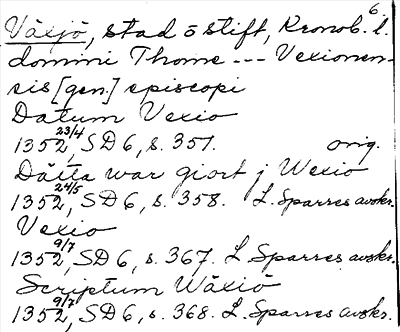 6.
Växjö, stad o stift, Kronob. l.
domini Thome --- Vexionen-
sis [gen.] episcopi
Datum Vexio
1352 23/4, SD 6, s. 351. orig.
Dätta war giort j Wexio
1352 24/5, SD 6, s. 358. L. Sparres avskr.
Vexio
1352 9/7, SD 6, s. 367. L Sparres avskr.
Scriptum Wäxiö
1352 9/7, SD 6, s. 368. L. Sparres avskr.